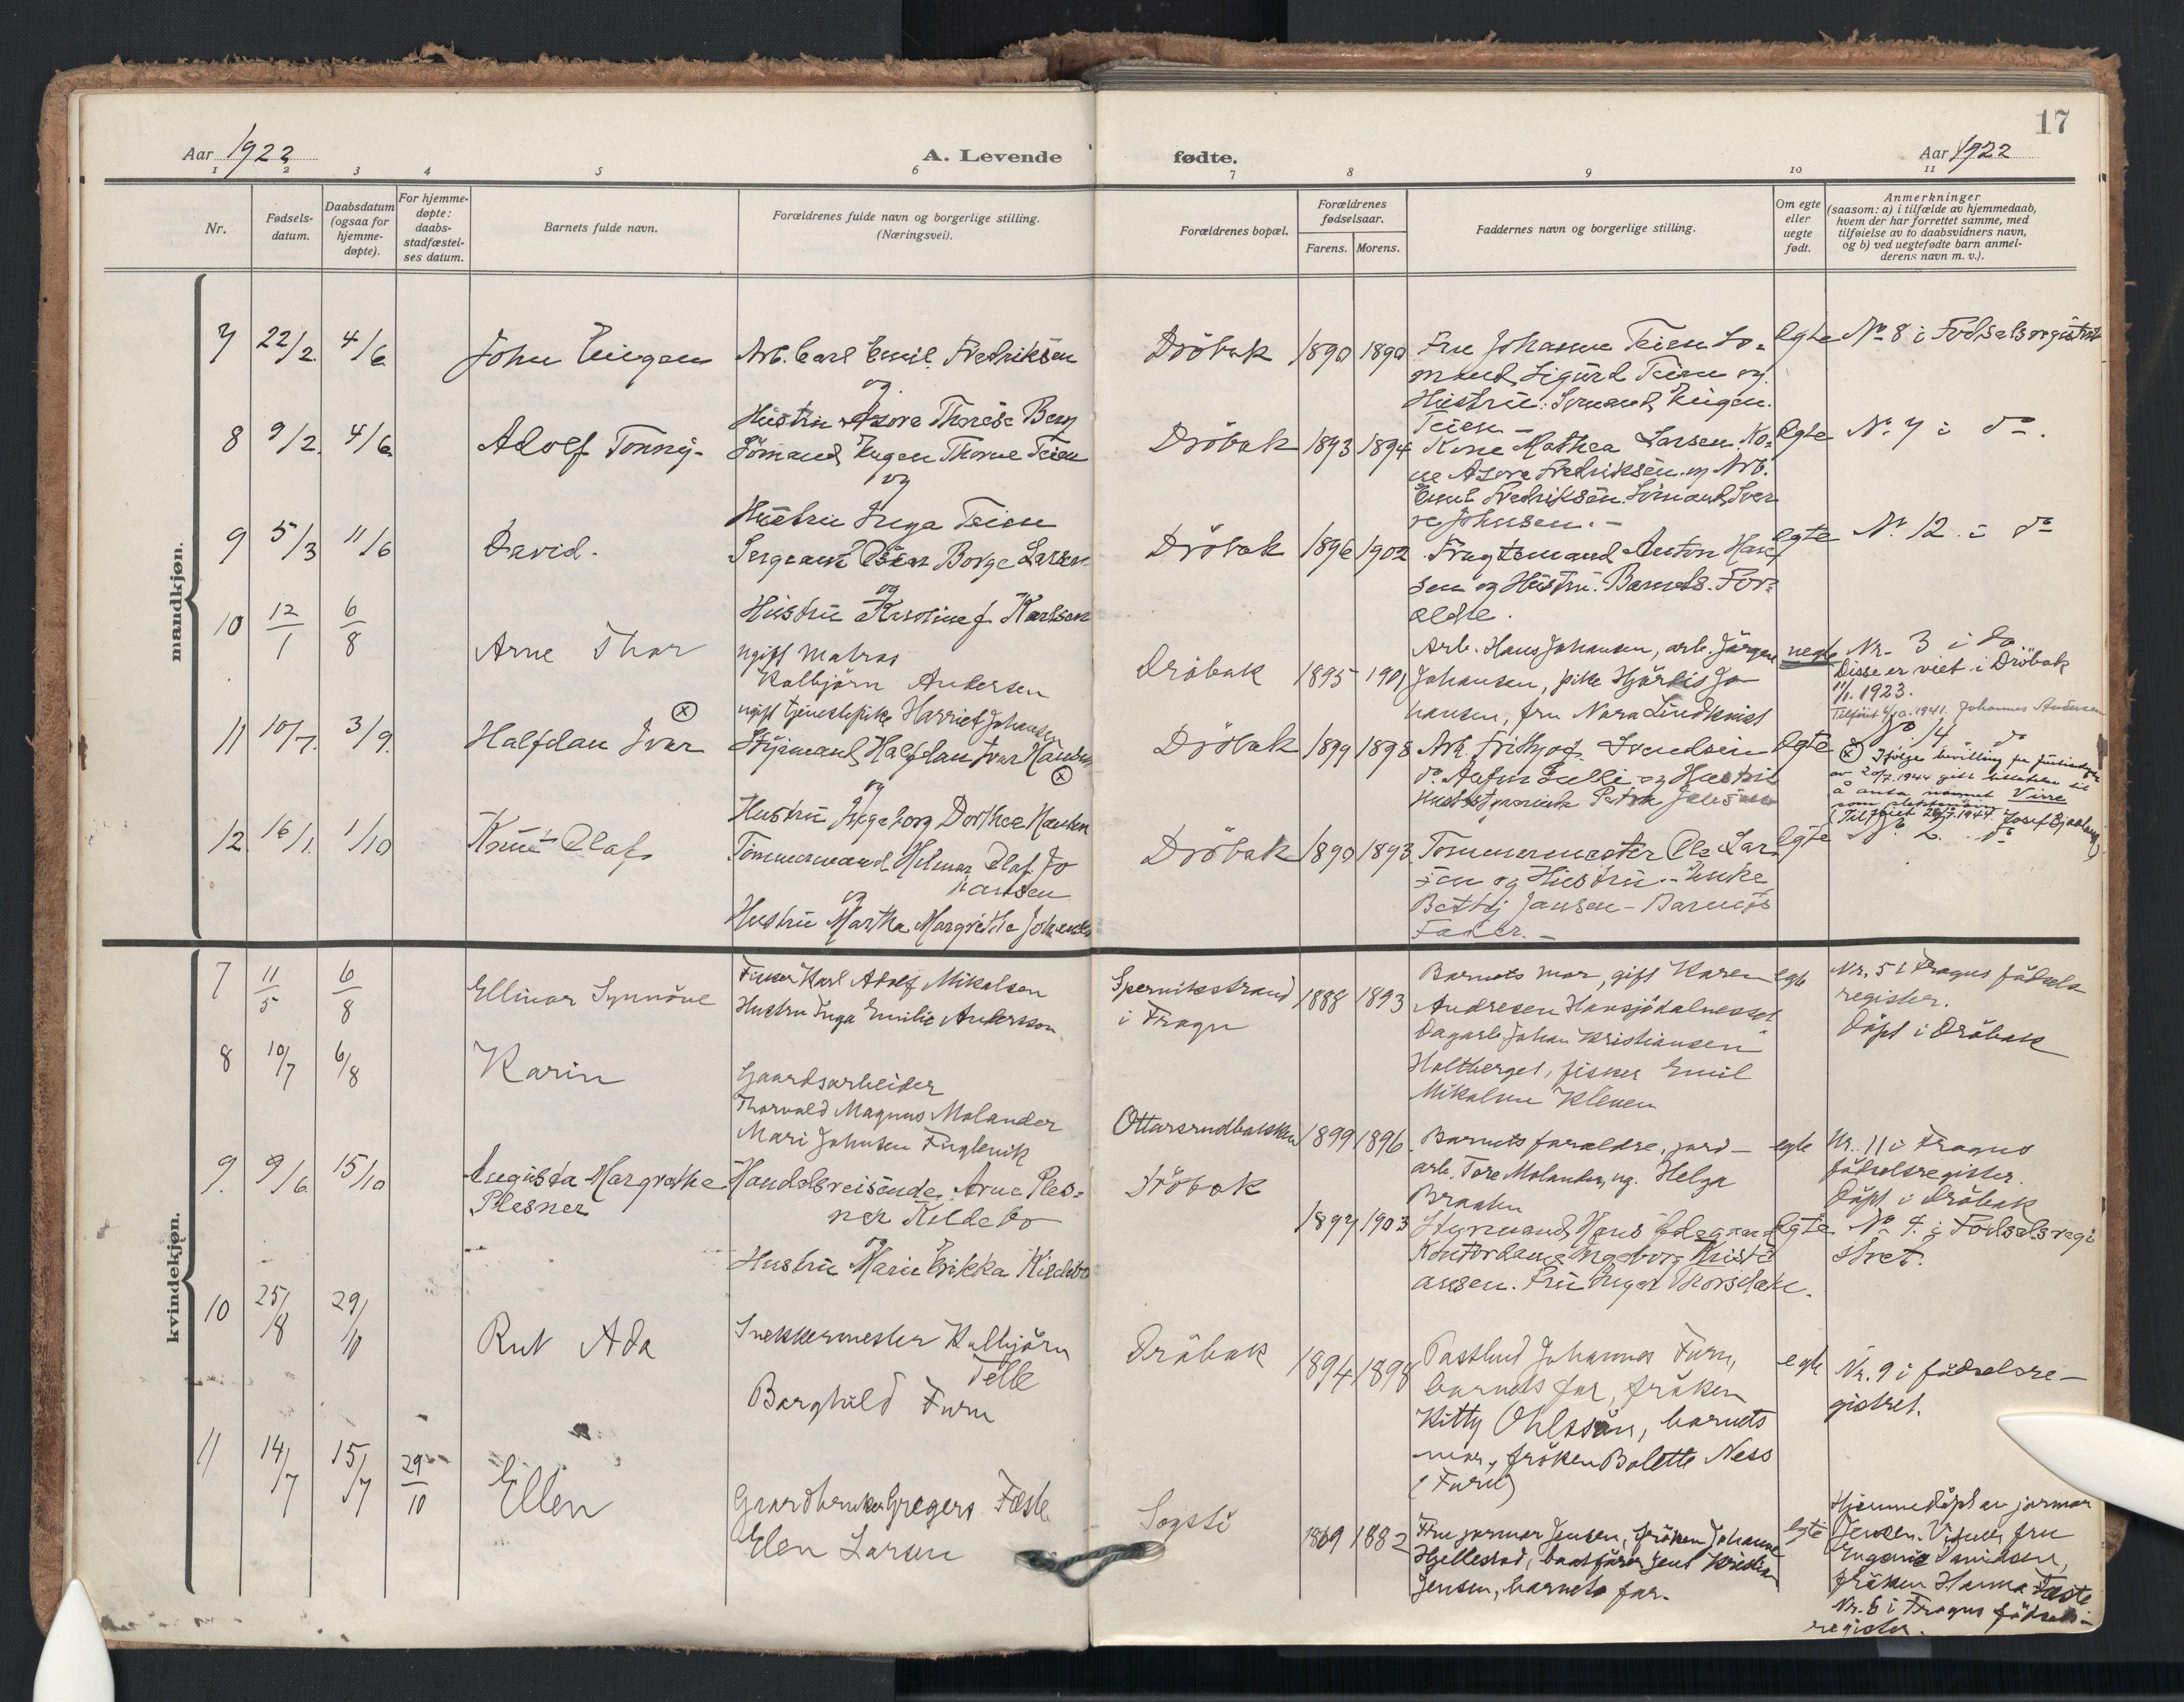 17
Aar 1922
A. Levende
fødte.
Aar 1922
1 2 3 4 5 6 7 8 9 10 11
Nr.
Fødsels-
datum.
Daabsdatum
(ogsaa for
hjemme-
døpte).
For hjemme-
døpte:
daabs-
stadfæstel-
ses datum.
Barnets fulde navn.
Forældrenes fulde navn og borgerlige stilling.
(Næringsvei).
Forældrenes bopæl.
Forældrenes
fødselsaar.
Farens. Morens.
Faddernes navn og borgerlige stilling.
Om egte
eller
uegte
født.
Anmerkninger
(saasom: a) i tilfælde av hjemmedaab,
hvem der har forrettet samme, med
tilføielse av to daabsvidners navn,
og b) ved uegtefødte barn anmel-
derens navn m. v.).
mandkjøn.
7 22/2. 4/6 John Eugen
Arb. Carl Emil Fredriksen
og
Hustru Asora Therese Berg
Dröbak 1890 1890
Fru Johanne Teien Sö-
mand Sigurd Teien og
Hustru. Sömand Eugen
Teien -
Egte
No 8 i Fødselsregistret
8 9/2. 4/6. Adolf Tonny-
Sömand Eugen Thorne Teien
og
Hustru Inga Teien
Dröbak 1893 1894
Kone Mathea Larsen, Ko-
ne Asora Fredriksen og Arb.
Emil Fredriksen. Sömand Sver
re Johnsen. -
Egte
No 7 i do.
9 5/3 11/6 David.
Sergeant Oskar Borge Larsen
og
Hustru Karoline f. Karlsen
Dröbak 1896 1902
Fragtemand Anton Han
sen og Hustru. Barnets For-
ældre.
Egte
No 12 i do
10 12/1 6/8 Arne Thor
ugift matros
Kolbjörn Andersen
ugift tjenestepike Harriet Johansen
Dröbak 1895 1901
Arb. Hans Johansen, arb. Jörgen
Johansen, pike Hjördis Jo
hansen, fru Nora Lindkvist
uegte
Nr. 3 i do
Disse er viet i Dröbak
11/1. 1923.
1941. Johannes Andersen
11 10/7. 3/9. Halfdan Ivar
Styrmand Halfdan Ivar Hansen
og
Hustru Ingeborg Dorthea Hansen
Dröbak 1899 1898
Arb. Frithjof Svendsen
Egte
No 14 do
Ifölge bevilling fra
av 20/7. 1944 gitt tillatelse til
å anta navnet Virre
som slektsnavn
12. 16/1. 1/10 Knut Olaf
Tömmermand Hilmar Olaf Jo
hansen
og
Hustru Martha Margrethe Johansen
Dröbak 1890 1893
Tömmermester Ole Lar
sen og Hustru - Enke
Betty Jansen - Barnets
Fader. -
Egte
No 2. do
kvindekjøn.
7 11/5 6/8 Ellinor Synnöve
Fisker Karl Adolf Mikalsen
Hustru Inga Emilie Andersson
Spernikstrand
i Frogn
1888 1893
Barnets mor, gift Karen
Andresen
Dagarb. Johan Kristiansen
Holtberget, fisker Emil
Mikalsen Kleven
egte
Nr. 5 i Frogns födsels
register.
Döpt i Dröbak
8 10/7 6/8 Karin
Gaardsarbeider
Thorvald Magnus Molander
Mari Johnsen Fuglevik
Ottarsrudbakken
1899 1896
Barnets foraldre, jord-
arb. Tore Molander, ug. Helga
Braaten
egte
Nr. 11 i Frogns
födselsregister.
Döpt i Dröbak
9. 9/6 15/10 Augusta Margrethe
Plesner
Handelsreisende Arne Ples-
ner Kildebo
og
Hustru Marie Erikka Kildebo
Dröbak
1897 1903
Styrmand Hans
Kontordame Ingeborg Kristi
ansen. Fru Inger
Egte
No 4 i Fødselsregi
stret.
10 25/8 29/10 Rut Ada
Snekkermester Kolbjörn
Telle
Borghild Furu
Dröbak
1894 1898
Postbud Johannes Furu,
barnets far, fröken
Kitty Ohlssön, barnets
mor, fröken Bolette Ness
(Furu)
egte
Nr. 9 i födselsre-
gistret.
11 14/7 15/7 29/10 Ellen
Gaardbruker Gregers Fæste
Elen Larsen
Sogsti
1869 1882
Fru jormor Jensen, fröken Johanne
Hjellestad, baatförer Jens Kristian
Jensen, barnets far.
Egte
Hjemmedöpt av jormor
Jensen. Vidner, fru
Eugenie Davidsen,
fröken Hanna Fæste
Nr. 6 i Frogns födsels-
register.